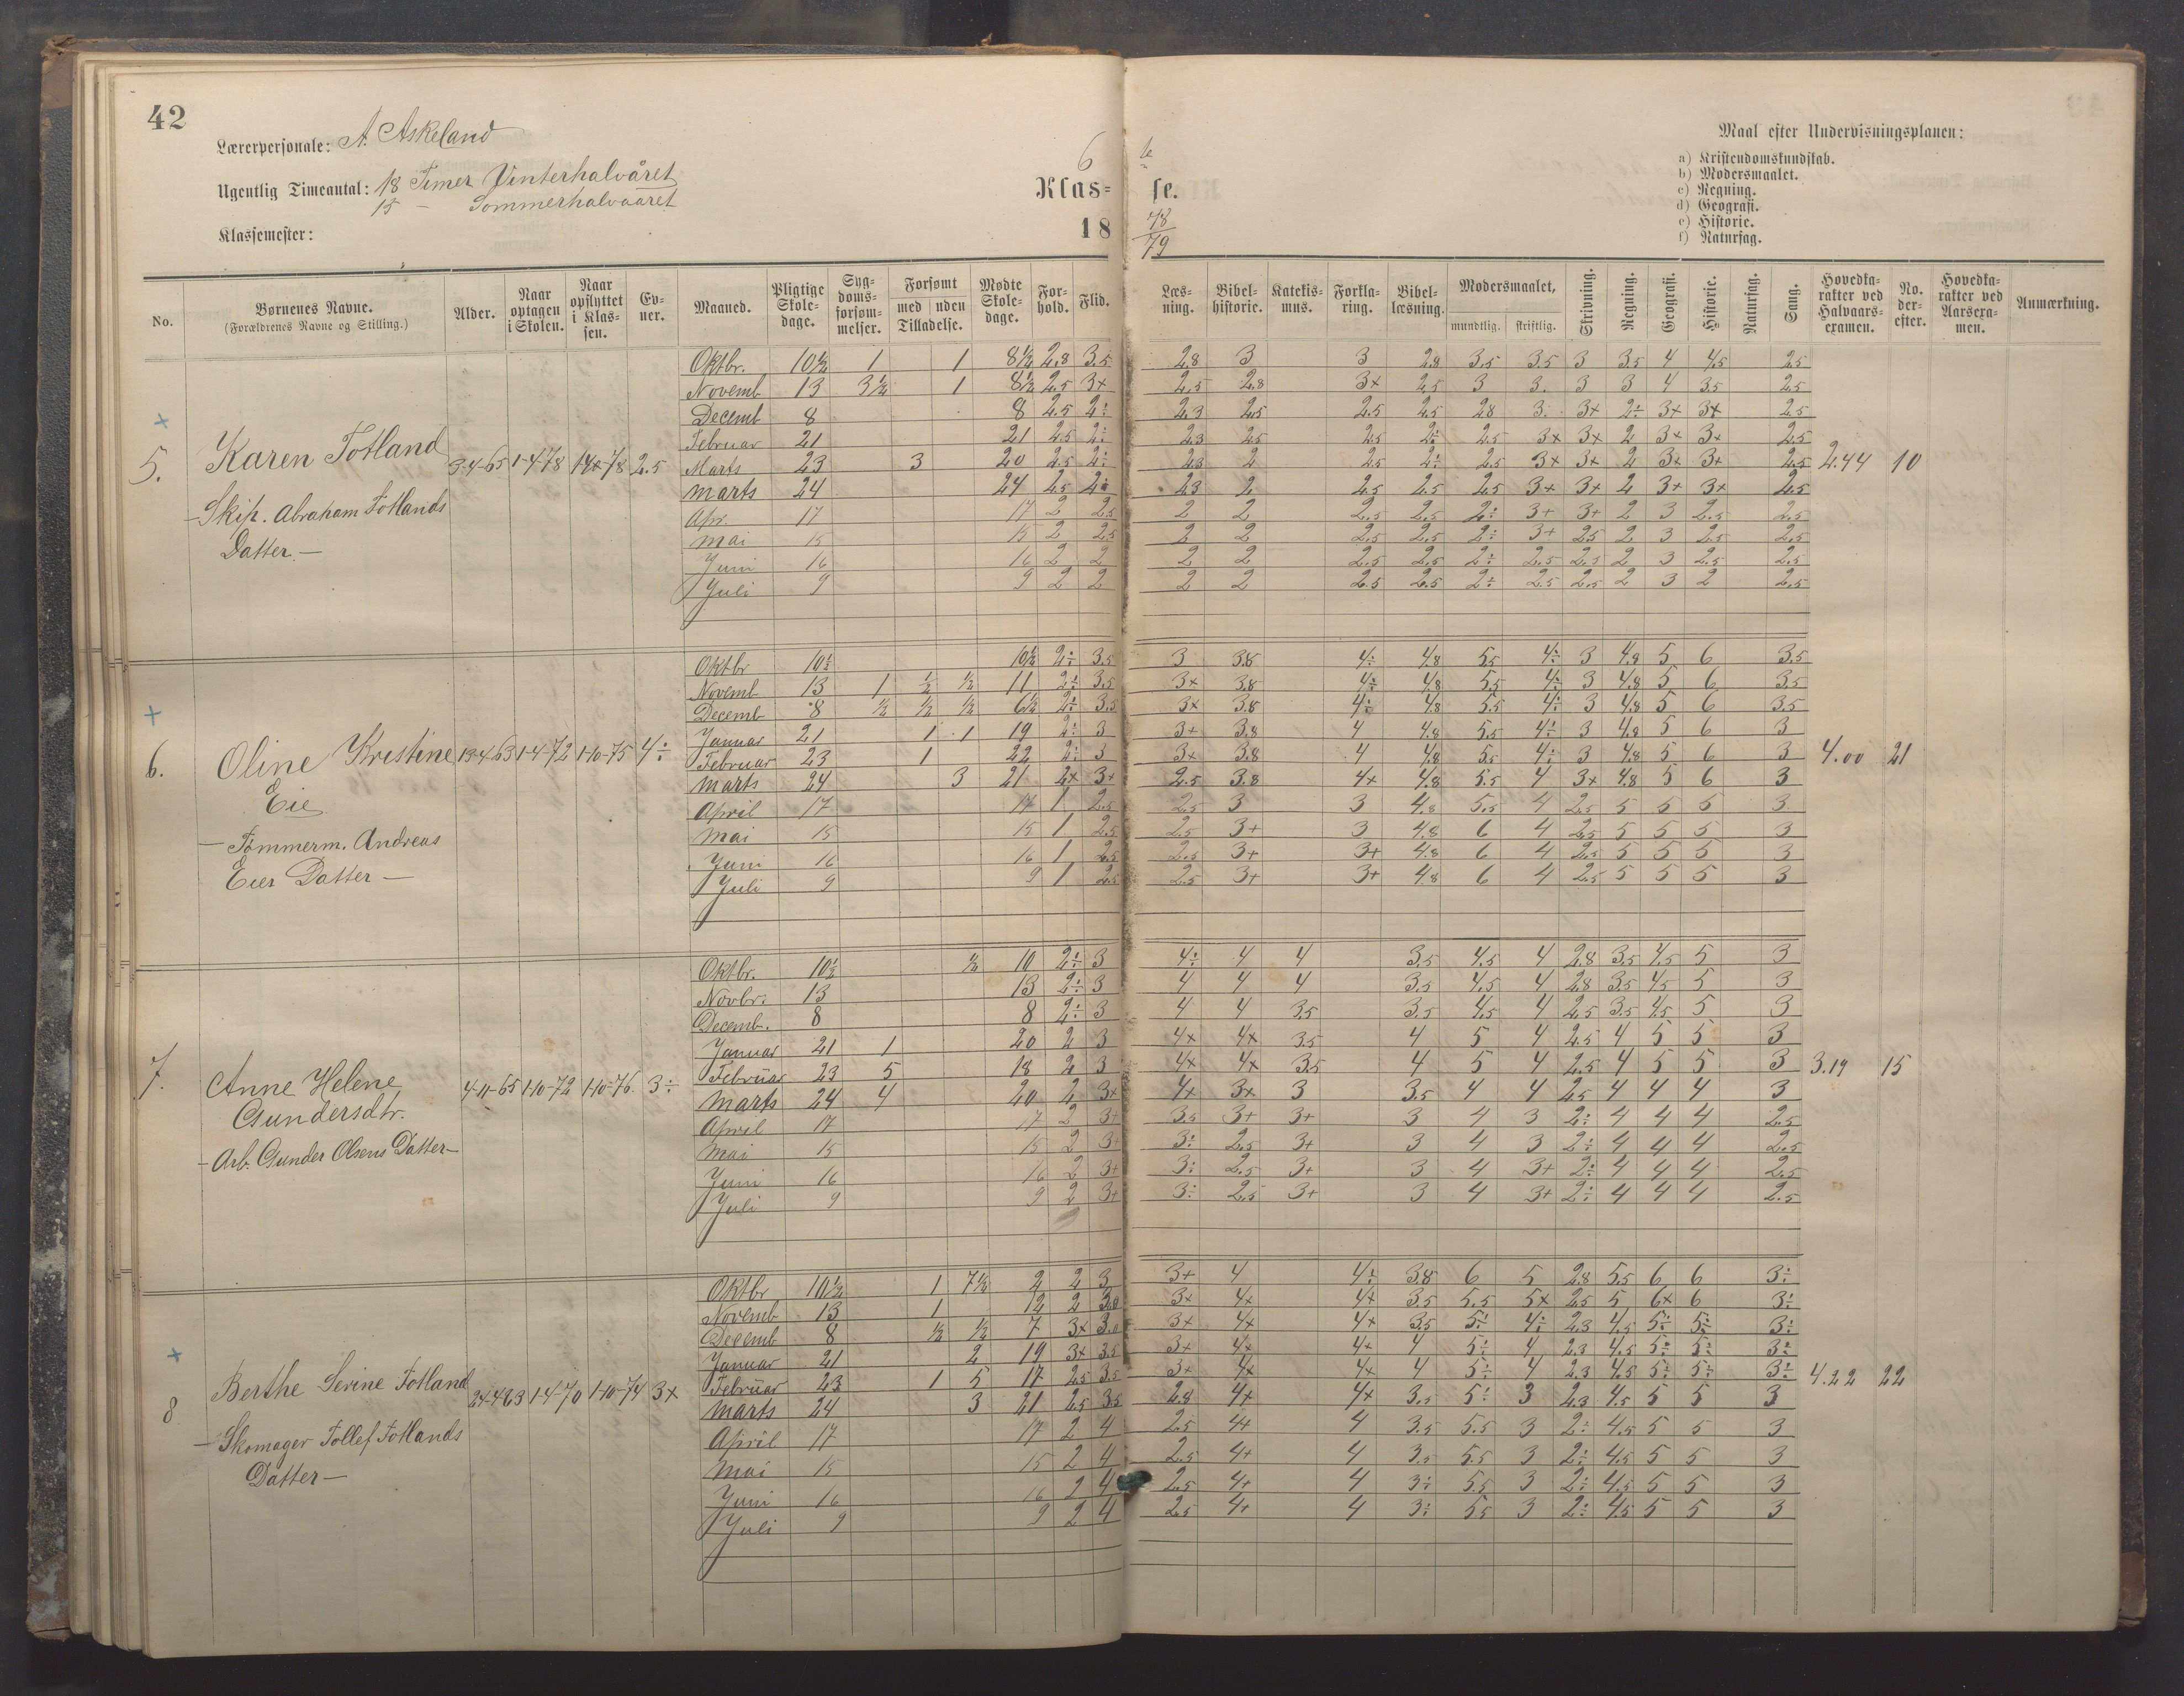 42
Lærerpersonale: A. Askeland
Ugentlig Timeantal: 18 Timer Vinterhalvåret
15 — Sommerhalvaaret
Klassemester:
6te
Klasse.
18 78/79
Maal efter Undervisningsplanen:
a) Kristendomskundskab.
b) Modersmaalet.
c) Regning.
d) Geografi.
e) Historie.
f) Naturfag.
No. | Børnenes Navne. (Forældrenes Navne og Stilling.) | Alder. | Naar optagen i Skolen. | Naar opflyttet i Klassen. | Evner. | Maaned. | Pligtige Skoledage. | Sygdomsforsømmelser. | Forsømt med uden Tilladelse. | Mødte Skoledage. | Forhold. | Flid. | Læsning. | Bibelhistorie. | Katekismus. | Forklaring. | Bibellæsning. | Modersmaalet, mundtlig. skriftlig. | Skrivning. | Regning. | Geografi. | Historie. | Naturfag. | Sang. | Hovedkarakter ved Halvaarsexamen. | No. derefter. | Hovedkarakter ved Aarsexamen. | Anmærkning.
5. Karen Totland 3-4-65 1-4-78 2.5 2.44 10
- Skip. Abraham Totlands
Datter —
Oktbr. 10½ 1 1 8½ 2.8 3.5 2.8 3 3 2.8 3.5 3.5 3 3.5 4 4.5 2.5
Novemb 13 3½ 1 8½ 2.5 3+ 2.5 2.8 3+ 2.5 3 3. 3 3 4 3.5 2.5
Decemb 8 8 2.5 2÷ 2.3 2.5 2.5 2.5 2.8 3. 3+ 2÷ 3+ 3+ 2.5
Februar 21 21 2.5 2÷ 2.3 2.5 2.5 2÷ 2.5 3+ 3+ 2 3+ 3+ 2.5
Marts 23 3 20 2.5 2÷ 2.3 2 2.5 2÷ 2.5 3+ 3+ 2 3+ 3+ 2.5
Marts 24 24 2.5 2÷ 2.3 2 2.5 2.5 2.5 3+ 3+ 2 3+ 3+ 2.5
Apr. 17 17 2 2.5 2 2 2.5 2.5 2÷ 3+ 3+ 2 3 2.5 2.5
Mai 15 15 2 2.5 2 2 2.5 2.5 2÷ 3+ 2.5 2 3 2.5 2.5
Juni 16 16 2 2 2 2 2.5 2.5 2÷ 2.5 2.5 2 3 2.5 2.5
Juli 9 9 2 2 2 2 2.5 2.5 2÷ 2.5 2.5 2 3 2 2.5
6. Oline Kristine 13-4-63 1-4-72 1-10-75 4÷ 4.00 21
Eie
— Tømmerm. Andreas
Eies Datter —
Oktbr 10½ 10½ 2÷ 3.5 3 3.8 4÷ 4.8 5.5 4÷ 3 4.8 5 6 3.5
Novemb 13 1 ½ ½ 11 2÷ 3.5 3+ 3.8 4÷ 4.8 5.5 4÷ 3 4.8 5 6 3.5
Decemb 8 ½ ½ ½ 6½ 2÷ 3.5 3+ 3.8 4÷ 4.8 5.5 4÷ 3 4.8 5 6 3.5
Januar 21 1 1 19 2÷ 3 3+ 3.8 4 4.8 5.5 4÷ 3 4.8 5 6 3
Februar 23 1 22 2÷ 3 3+ 3.8 4 4.8 5.5 4÷ 3 4.8 5 6 3
Marts 24 3 21 2+ 3+ 2.5 3.8 4+ 4.8 5.5 4 3+ 4.8 5 6 3
April 17 17 1 2.5 2.5 3 3 4.8 5.5 4 2.5 5 5 5 3
Mai 15 15 1 2.5 2.5 3+ 3 4.8 6 4 2.5 5 5 5 3
Juni 16 16 1 2.5 2.5 3+ 3+ 4.8 6 4 2.5 5 5 5 3
Juli 9 9 1 2.5 2.5 3+ 3+ 4.8 6 4 2.5 5 5 5 3
7. Anne Helene 4-11-65 1-10-72 1-10-76. 3÷ 3.19 15
Gundersdtr.
- Arb. Gunder Olsens Datter —
Oktbr. 10½ ½ 10 2÷ 3 4÷ 4 4 3.5 4.5 4 2.8 3.5 4.5 5 3
Novbr. 13 13 2÷ 3 4 4 4 3.5 4.5 4 2.8 3.5 4.5 5 3
Decemb. 8 8 2÷ 3 4 4 3.5 3.5 4.5 4 2.5 3.5 4.5 5 3
Januar 21 1 20 2 3 4+ 4+ 3.5 4 5 4 2.5 4 5 5 3
Februar 23 5 18 2 3 4+ 4+ 3.5 4 5 4 2.5 4 5 5 3
Marts 24 4 20 2 3+ 4+ 3+ 3 3.5 4 4 2.5 4 4 4 3
April 17 17 2 3+ 3.5 3+ 3+ 3 4 3 2÷ 4 4 4 2.5
Mai 15 15 2 3+ 3÷ 2.5 3+ 3 4 3 2÷ 4 4 4 2.5
Juni 16 16 2 3+ 3÷ 2.5 3+ 3 4 3+ 2÷ 4 4 4 2.5
Juli 9 9 2 3+ 3÷ 2.5 3+ 3 4 3+ 2÷ 4 4 4 2.5
8 Berthe Serine Totland 24-4-63 1-4-70 1-10-74 3+ 4.22 22
— Skomager Tollef Totlands
Datter —
Oktbr 10½ 1 7½ 2 2 3 3+ 4 4÷ 3.8 6 5 2.8 5.5 6 6 3÷
Novemb 13 1 12 2 3.0 3+ 4+ 4+ 3.5 5.5 5+ 2.5 5 6+ 6 3÷
Decemb 8 ½ ½ 7 3+ 3.0 3+ 4+ 4+ 3.5 5÷ 4÷ 2.3 4.5 5÷ 5÷ 3÷
Januar 21 2 19 3+ 3.5 3+ 4+ 4+ 4 5÷ 4 2.3 4.5 5÷ 5÷ 3÷
Februar 23 1 5 17 2.5 3.5 3+ 4+ 4+ 4 5÷ 4 2.3 4.5 5÷ 5÷ 3÷
Marts 24 3 21 2.5 3.5 2.8 4+ 4+ 3.5 5÷ 3 2.3 4.5 5 5 3
April 17 17 2 4 2.5 4+ 4 3.5 5.5 3 2÷ 4.5 5 5 3
Mai 15 15 2 4 2.5 4+ 4 3.5 5.5 3 2÷ 4.5 5 5 3
Juni 16 16 2 4 2.5 4+ 4 3÷ 5.5 3 2÷ 4.5 5 5 3
Juli 9 9 2 4 2.5 4+ 4 3÷ 5.5 3 2÷ 4.5 5 5 3